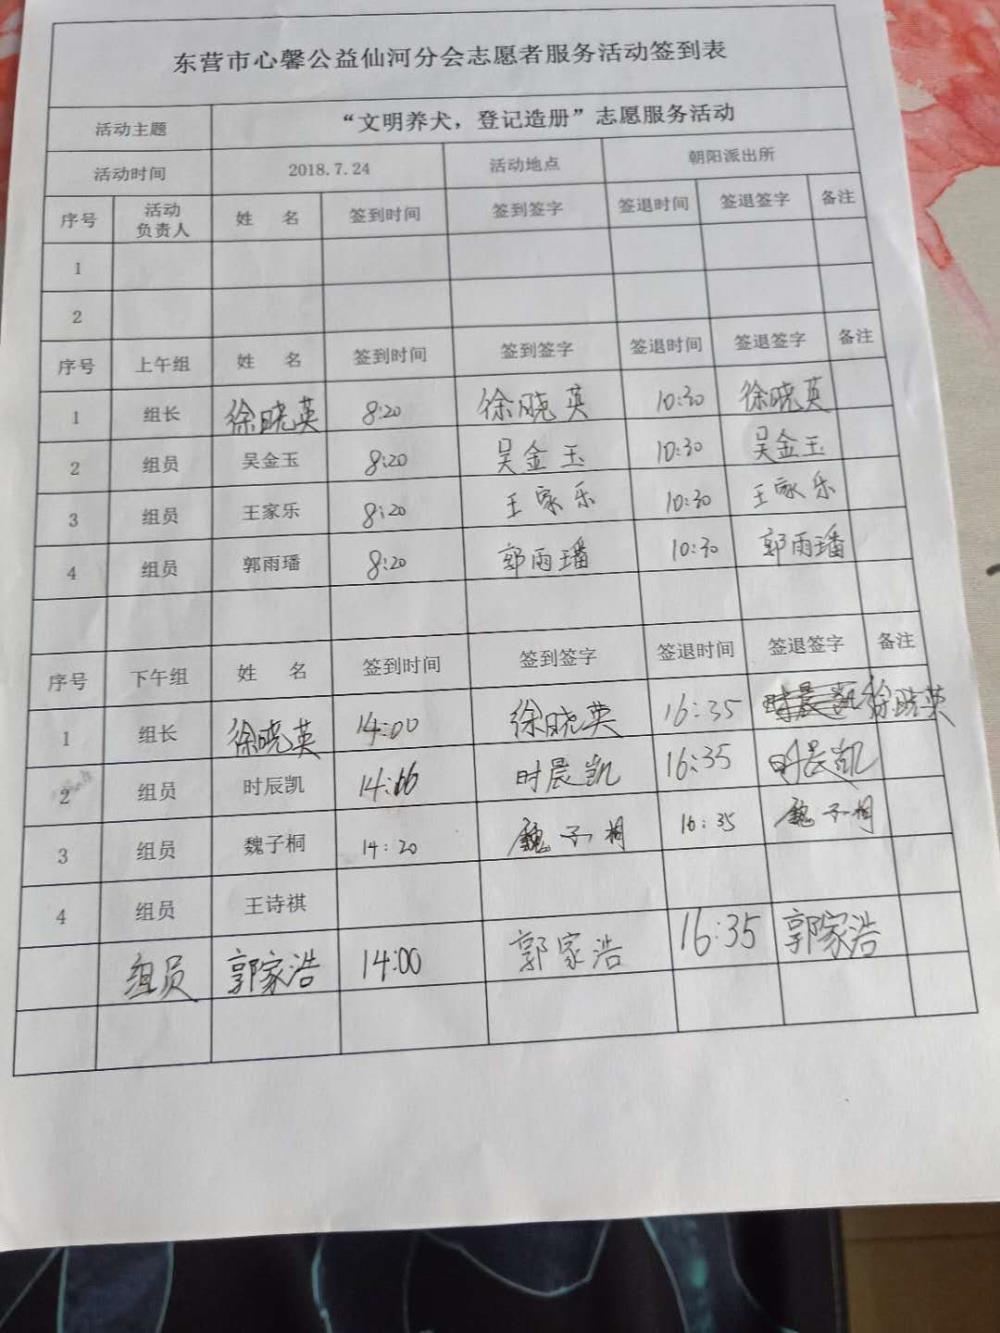 东营市心馨公益仙河分会志愿者服务活动签到表
活动主题 “文明养犬，登记造册”志愿服务活动
活动时间 2018.7.24 活动地点 朝阳派出所
序号 活动负责人 姓 名 签到时间 签到签字 签退时间 签退签字 备注
1
2
序号 上午组 姓 名 签到时间 签到签字 签退时间 签退签字 备注
1 组长 徐晓英 8:20 徐晓英 10:30 徐晓英
2 组员 吴金玉 8:20 吴金玉 10:30 吴金玉
3 组员 王家乐 8:20 王家乐 10:30 王家乐
4 组员 郭雨璠 8:20 郭雨璠 10:30 郭雨璠
序号 下午组 姓 名 签到时间 签到签字 签退时间 签退签字 备注
1 组长 徐晓英 14:00 徐晓英 16:35 徐晓英
2 组员 时辰凯 时辰凯 16:35 时辰凯
3 组员 魏子桐 14:20 魏子桐 16:35 魏子桐
4 组员 王诗祺
组员 郭家浩 14:00 郭家浩 16:35 郭家浩